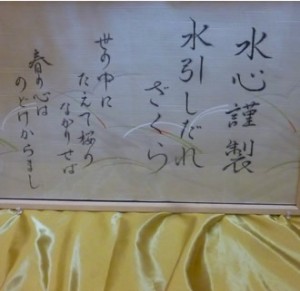 水心謹製
水引しだれ
ざくら
世の中に
たえて桜の
なかりせば
春の心は
のどけからまし